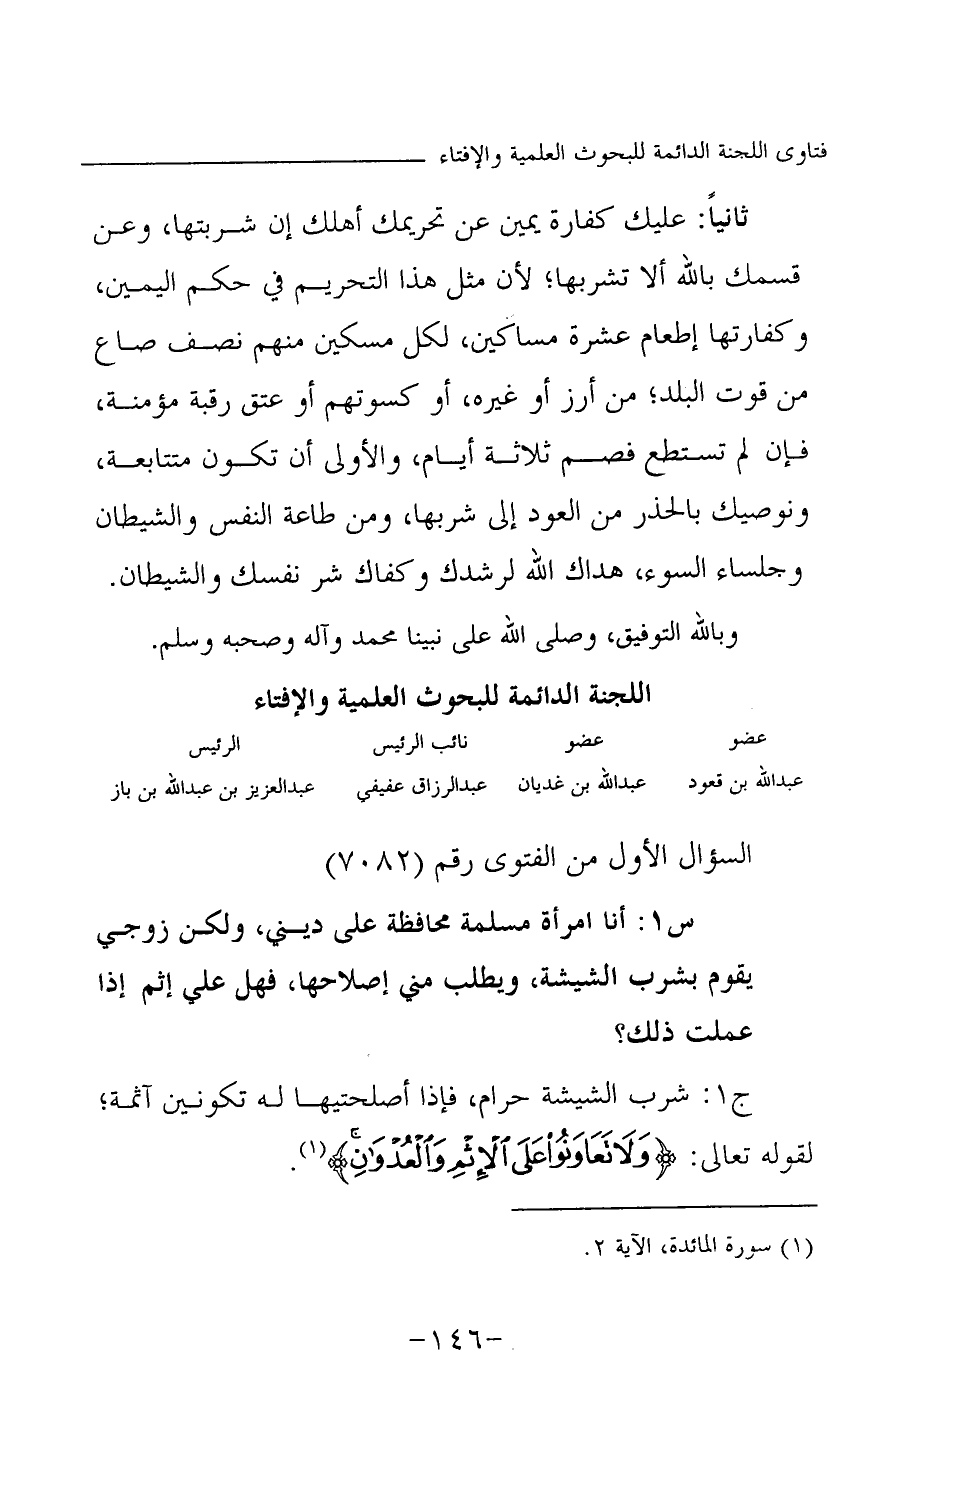 فتاوى اللجنة الدائمة للبحوث العلمية والإفتاء
ثانياً: عليك كفارة يمين عن تحريمك أهلك إن شربتها، وعن
قسمك بالله ألا تشربها؛ لأن مثل هذا التحريم في حكم اليمين،
وكفارتها إطعام عشرة مساكين، لكل مسكين منهم نصف صاع
من قوت البلد؛ من أرز أو غيره، أو كسوتهم أو عتق رقبة مؤمنة،
فإن لم تستطع فصم ثلاثة أيام، والأولى أن تكون متتابعة،
ونوصيك بالحذر من العود إلى شربها، ومن طاعة النفس والشيطان
وجلساء السوء، هداك الله لرشدك وكفاك شر نفسك والشيطان.
وبالله التوفيق، وصلى الله على نبينا محمد وآله وصحبه وسلم.
اللجنة الدائمة للبحوث العلمية والإفتاء
عضو عضو نائب الرئيس الرئيس
عبدالله بن قعود عبدالله بن غديان عبدالرزاق عفيفي عبدالعزيز بن عبدالله بن باز
السؤال الأول من الفتوى رقم (٧٠٨٢)
س١: أنا امرأة مسلمة محافظة على ديني، ولكن زوجي
يقوم بشرب الشيشة، ويطلب مني إصلاحها، فهل علي إثم إذا
عملت ذلك؟
ج١: شرب الشيشة حرام، فإذا أصلحتيها له تكونين آثمة؛
لقوله تعالى: ﴿وَلَا تَعَاوَنُوا۟ عَلَى ٱلْإِثْمِ وَٱلْعُدْوَٰنِ ۚ﴾(١).
(١) سورة المائدة، الآية ٢.
-١٤٦-